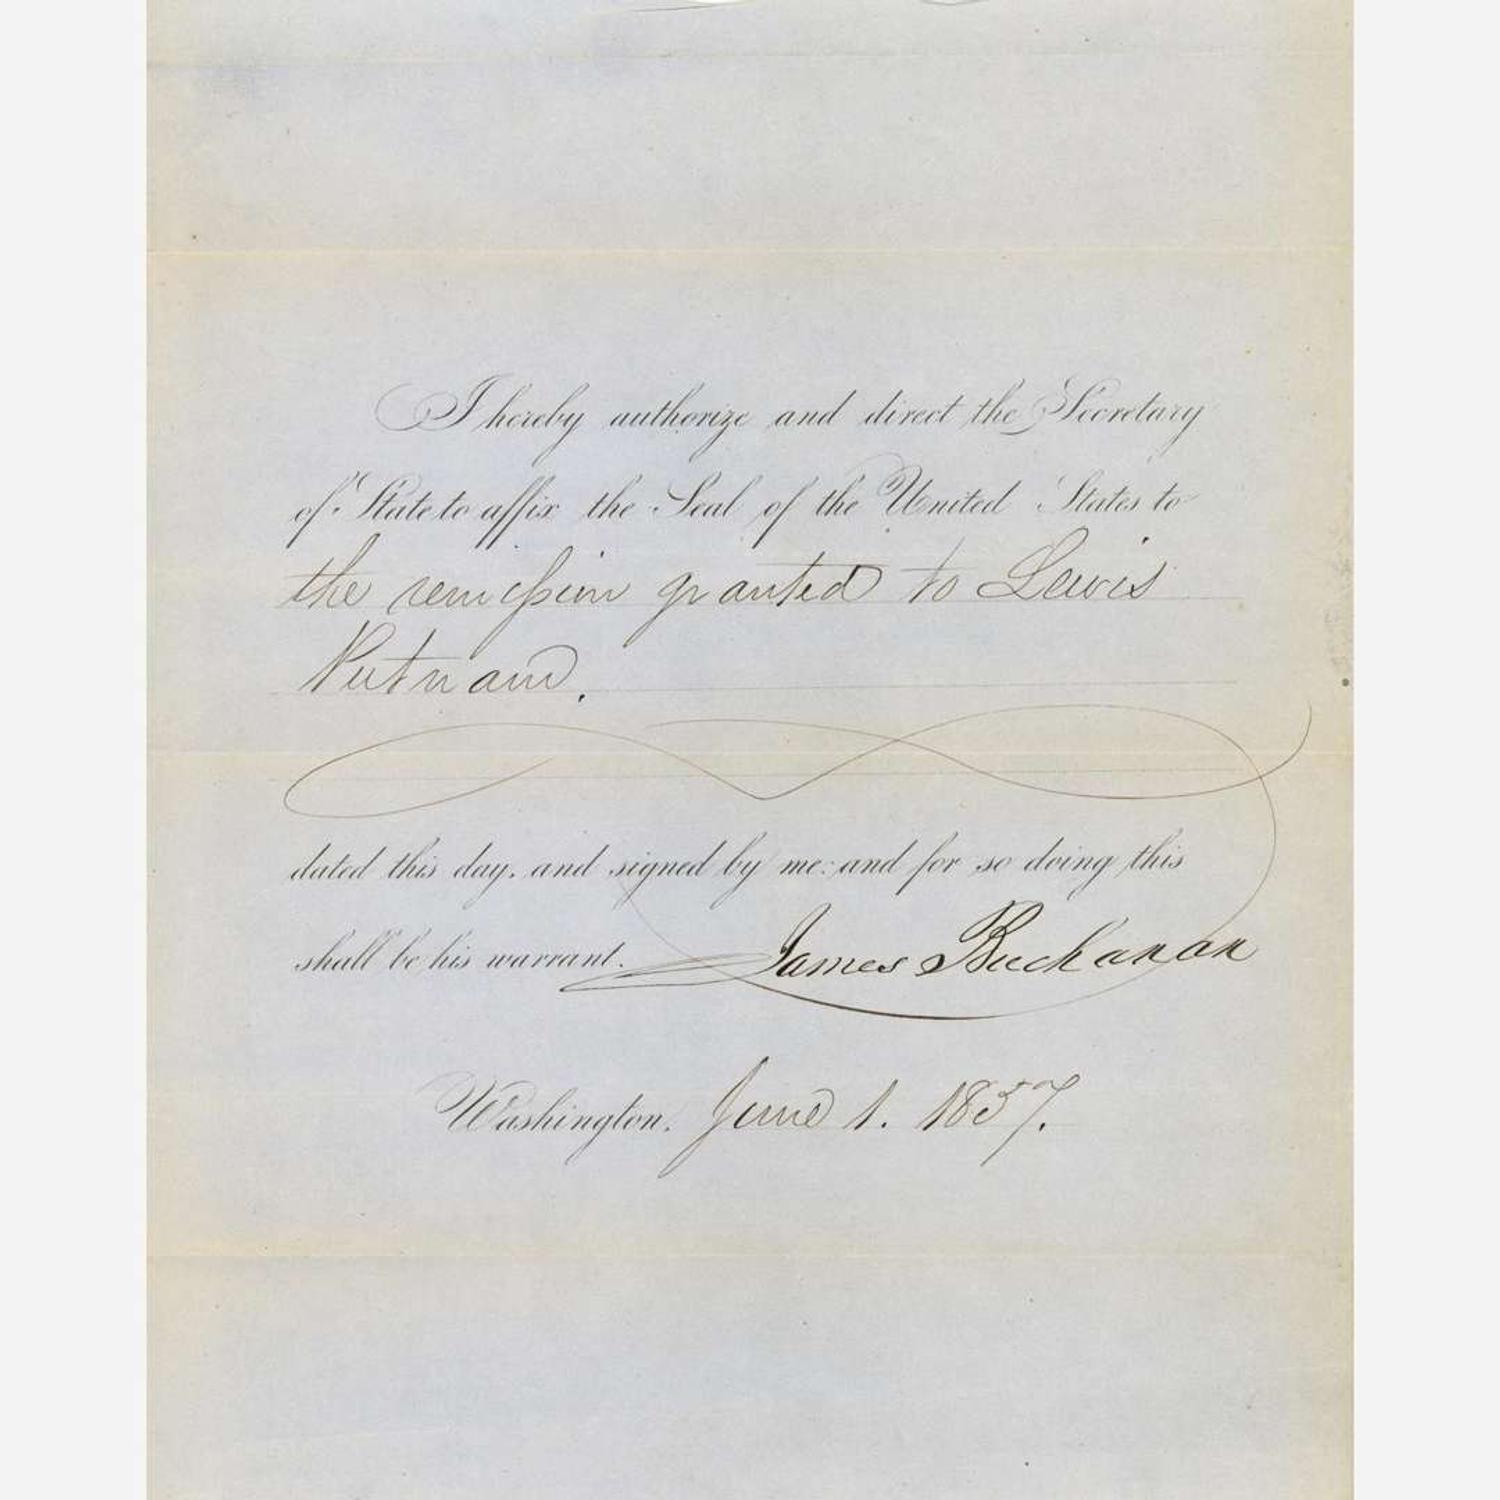 I hereby authorize and direct the Secretary
of State to affix the Seal of the United States to
the remission granted to Lewis
Putnam.
dated this day, and signed by me: and for so doing this
shall be his warrant.
James Buchanan
Washington, June 1. 1857.